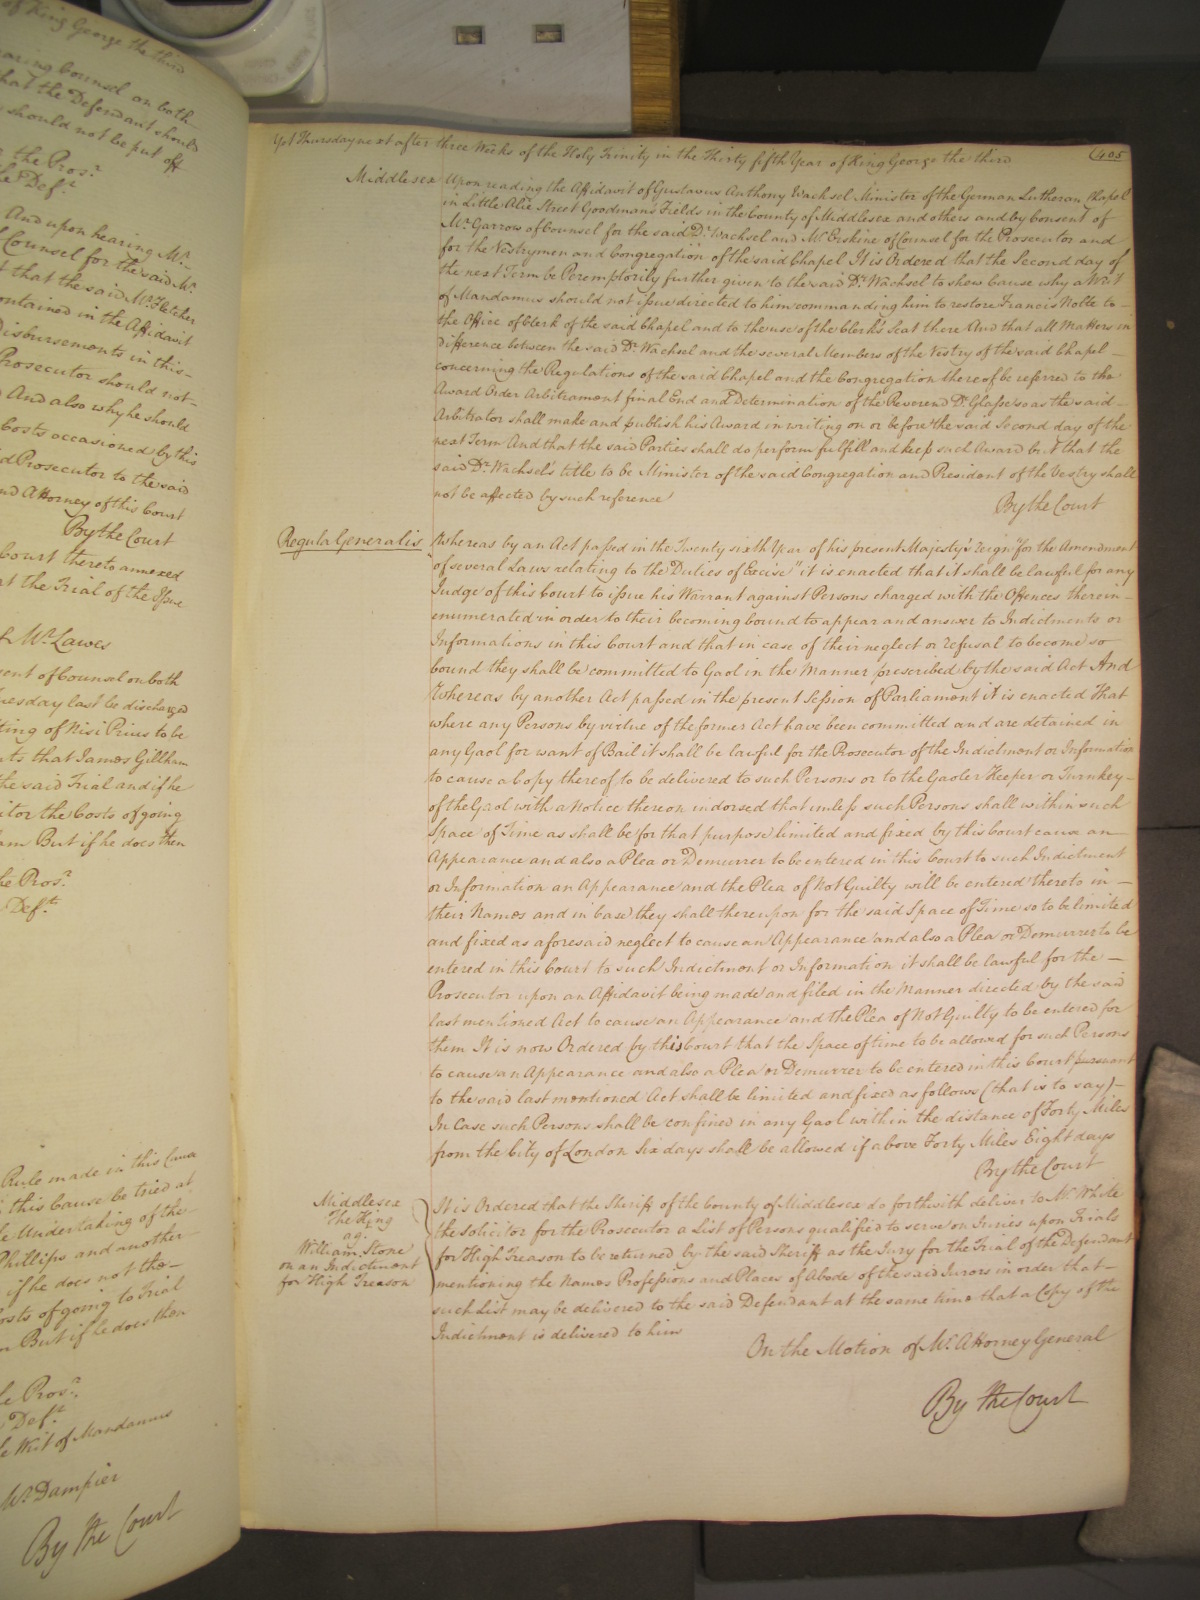 of King George the third
aring Counsel on both
hat the Defendant should
should not be put off
the Pros.r
Def.t
And upon hearing Mr.
Counsel for the said Mr.
t that the said Mr. Fletcher
ontained in the Affidavit
Disbursements in this
Prosecutor should not
And also why he should
Costs occasioned by this
id Prosecutor to the said
nd Attorney of this Court
By the Court
Court thereto annexed
at the Trial of the Issue
Mr. Lawes
sent of Counsel on both
uesday last be discharged
ting of Nisi Prius to be
nts that James Gillham
the said Trial and if he
itor the Costs of going
am But if he does then
he Pros.r
Def.t
Rule made in this Cause
this Cause be tried at
Undertaking of the
Phillips and another
if he does not the
osts of going to Trial
But if he does then
Pros.r
Def.t
Writ of Mandamus
Mr. Dampier
By the Court
Yet Thursday next after three Weeks of the Holy Trinity in the Thirty fifth Year of King George the third
405
Middlesex Upon reading the Affidavit of Gustavus Anthony Wachsel Minister of the German Lutheran Chapel
in Little Alie Street Goodmans Fields in the County of Middlesex and others and by Consent of
Mr. Garrow of Counsel for the said Dr. Wachsel and Mr. Erskine of Counsel for the Prosecutor and
for the Vestrymen and Congregation of the said Chapel It is Ordered that the Second day of
the next Term be Peremptorily further given to the said Dr. Wachsel to shew Cause why a Writ
of Mandamus should not issue directed to him commanding him to restore Francis Nolte to
the Office of Clerk of the said Chapel and to the use of the Clerk's Seat there And that all Matters in
difference between the said Dr. Wachsel and the several Members of the Vestry of the said Chapel
concerning the Regulations of the said Chapel and the Congregation thereof be referred to the
Award Order Arbitrament final End and Determination of the Reverend Dr. Glasse so as the said
Arbitrator shall make and publish his Award in writing on or before the said Second day of the
next Term And that the said Parties shall do perform fulfill and keep such Award but that the
said Dr. Wachsel's title to be Minister of the said Congregation and President of the Vestry shall
not be affected by such reference
By the Court
Regula Generalis Whereas by an Act passed in the Twenty sixth Year of his present Majesty's reign "for the Amendment
of several Laws relating to the Duties of Excise" it is enacted that it shall be lawful for any
Judge of this Court to issue his Warrant against Persons charged with the Offences therein
enumerated in order to their becoming bound to appear and answer to Indictments or
Informations in this Court and that in case of their neglect or refusal to become so
bound they shall be committed to Gaol in the Manner prescribed by the said Act And
Whereas by another Act passed in the present Session of Parliament it is enacted That
where any Persons by virtue of the former Act have been committed and are detained in
any Gaol for want of Bail it shall be lawful for the Prosecutor of the Indictment or Information
to cause a Copy thereof to be delivered to such Persons or to the Gaoler Keeper or Turnkey
of the Gaol with a Notice thereon indorsed that unless such Persons shall within such
Space of Time as shall be for that purpose limited and fixed by this Court cause an
Appearance and also a Plea or Demurrer to be entered in this Court to such Indictment
or Information an Appearance and the Plea of Not Guilty will be entered thereto in
their Names and in Case they shall thereupon for the said Space of Time so to be limited
and fixed as aforesaid neglect to cause an Appearance and also a Plea or Demurrer to be
entered in this Court to such Indictment or Information it shall be lawful for the
Prosecutor upon an Affidavit being made and filed in the Manner directed by the said
last mentioned Act to cause an Appearance and the Plea of Not Guilty to be entered for
them It is now Ordered by this Court that the Space of time to be allowed for such Persons
to cause an Appearance and also a Plea or Demurrer to be entered in this Court pursuant
to the said last mentioned Act shall be limited and fixed as follows (that is to say)
In Case such Persons shall be confined in any Gaol within the distance of Forty Miles
from the City of London Six days shall be allowed if above Forty Miles Eight days
By the Court
Middlesex
The King
ag.
William Stone
on an Indictment
for High Treason
It is Ordered that the Sheriff of the County of Middlesex do forthwith deliver to Mr. White
the Solicitor for the Prosecutor a List of Persons qualified to serve on Juries upon Trials
for High Treason to be returned by the said Sheriff as the Jury for the Trial of the Defendant
mentioning the Names Professions and Places of Abode of the said Jurors in order that
such List may be delivered to the said Defendant at the same time that a Copy of the
Indictment is delivered to him
On the Motion of Mr. Attorney General
By the Court